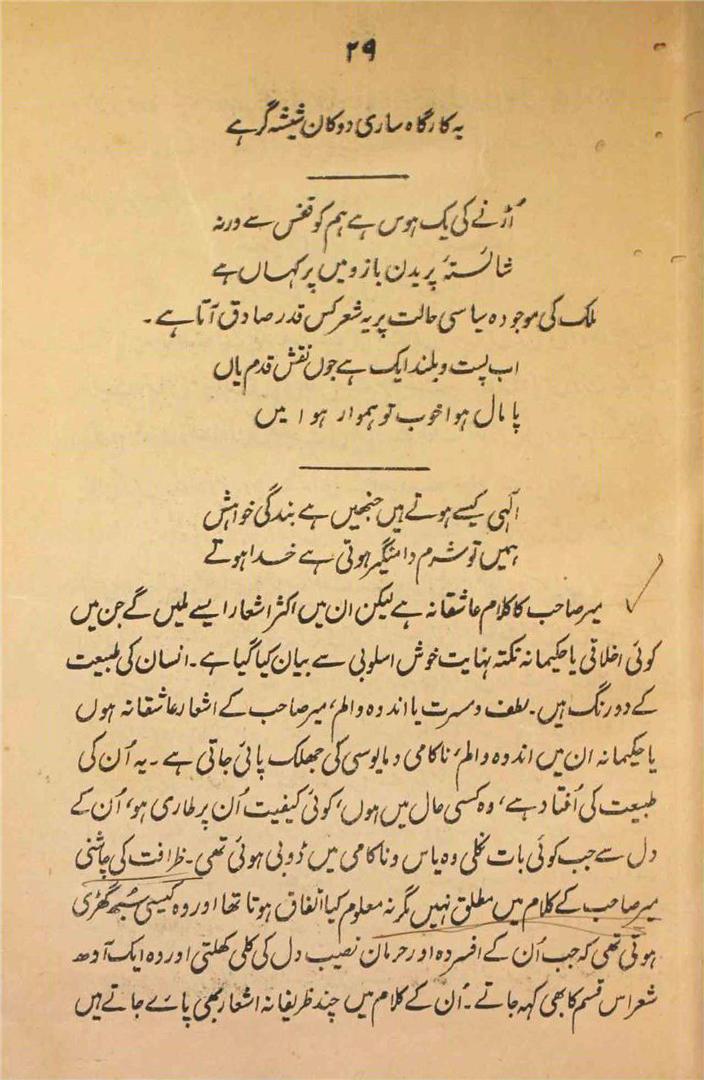 ۲۹
یہ کارگاہ ساری دوکان شیشہ گر ہے
اُڑنے کی یک ہوس ہے ہم کو قفس سے ورنہ
شائستۂ پریدن بازو میں پر کہاں ہے
ملک کی موجودہ سیاسی حالت پر یہ شعر کس قدر صادق آتا ہے۔
اب پست و بلند ایک ہے جوں نقش قدم یاں
پامال ہوا خوب تو ہموار ہوا میں
الٰہی کیسے ہوتے ہیں جنھیں ہے بندگی خواہش
ہمیں تو شرم دامنگیر ہوتی ہے خدا ہوتے
میر صاحب کا کلام عاشقانہ ہے لیکن ان میں اکثر اشعار ایسے ملیں گے جن میں
کوئی اخلاقی یا حکیمانہ نکتہ نہایت خوش اسلوبی سے بیان کیا گیا ہے۔ انسان کی طبیعت
کے دو رنگ ہیں۔ لطف و مسرت یا اندوہ و الم، میر صاحب کے اشعار عاشقانہ ہوں
یا حکیمانہ ان میں اندوہ و الم، ناکامی و مایوسی کی جھلک پائی جاتی ہے۔ یہ اُن کی
طبیعت کی اُفتاد ہے، وہ کسی حال میں ہوں، کوئی کیفیت اُن پر طاری ہو، اُن کے
دل سے جب کوئی بات نکلی وہ یاس و ناکامی میں ڈوبی ہوئی تھی۔ ظرافت کی چاشنی
میر صاحب کے کلام میں مطلق نہیں مگر نہ معلوم کیا اتفاق ہوتا تھا اور وہ کیسی سُبھ گھڑی
ہوتی تھی کہ جب اُن کے افسردہ اور حرمان نصیب دل کی کلی کھلتی اور وہ ایک آدھ
شعر اس قسم کا بھی کہہ جاتے۔ اُن کے کلام میں چند ظریفانہ اشعار بھی پائے جاتے ہیں